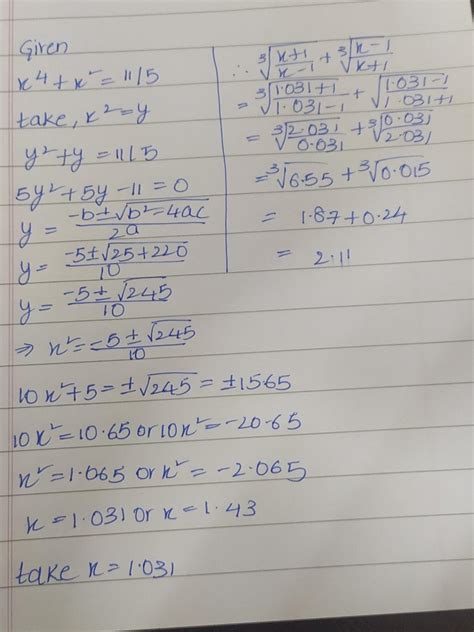 Given
x⁴ + x² = 11/5
take, x² = y
y² + y = 11/5
5y² + 5y - 11 = 0
y = (-b ± √(b² - 4ac))/2a
y = (-5 ± √(25 + 220))/10
y = (-5 ± √245)/10
⇒ x² = (-5 ± √245)/10
10x² + 5 = ± √245 = ± 1565
10x² = 10.65 or 10x² = -20.65
x² = 1.065 or x² = -2.065
x = 1.031 or x = 1.43
take x = 1.031
∴ ∛((x+1)/(x-1)) + ∛((x-1)/(x+1))
= ∛((1.031+1)/(1.031-1)) + √((1.031-1)/(1.031+1))
= ∛(2.031/0.031) + ∛(0.031/2.031)
= ∛6.55 + ∛0.015
= 1.87 + 0.24
= 2.11